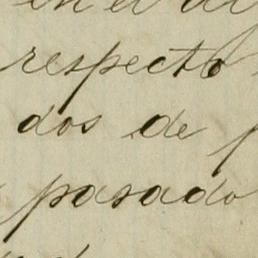 en el
respecto
dos de
pasado